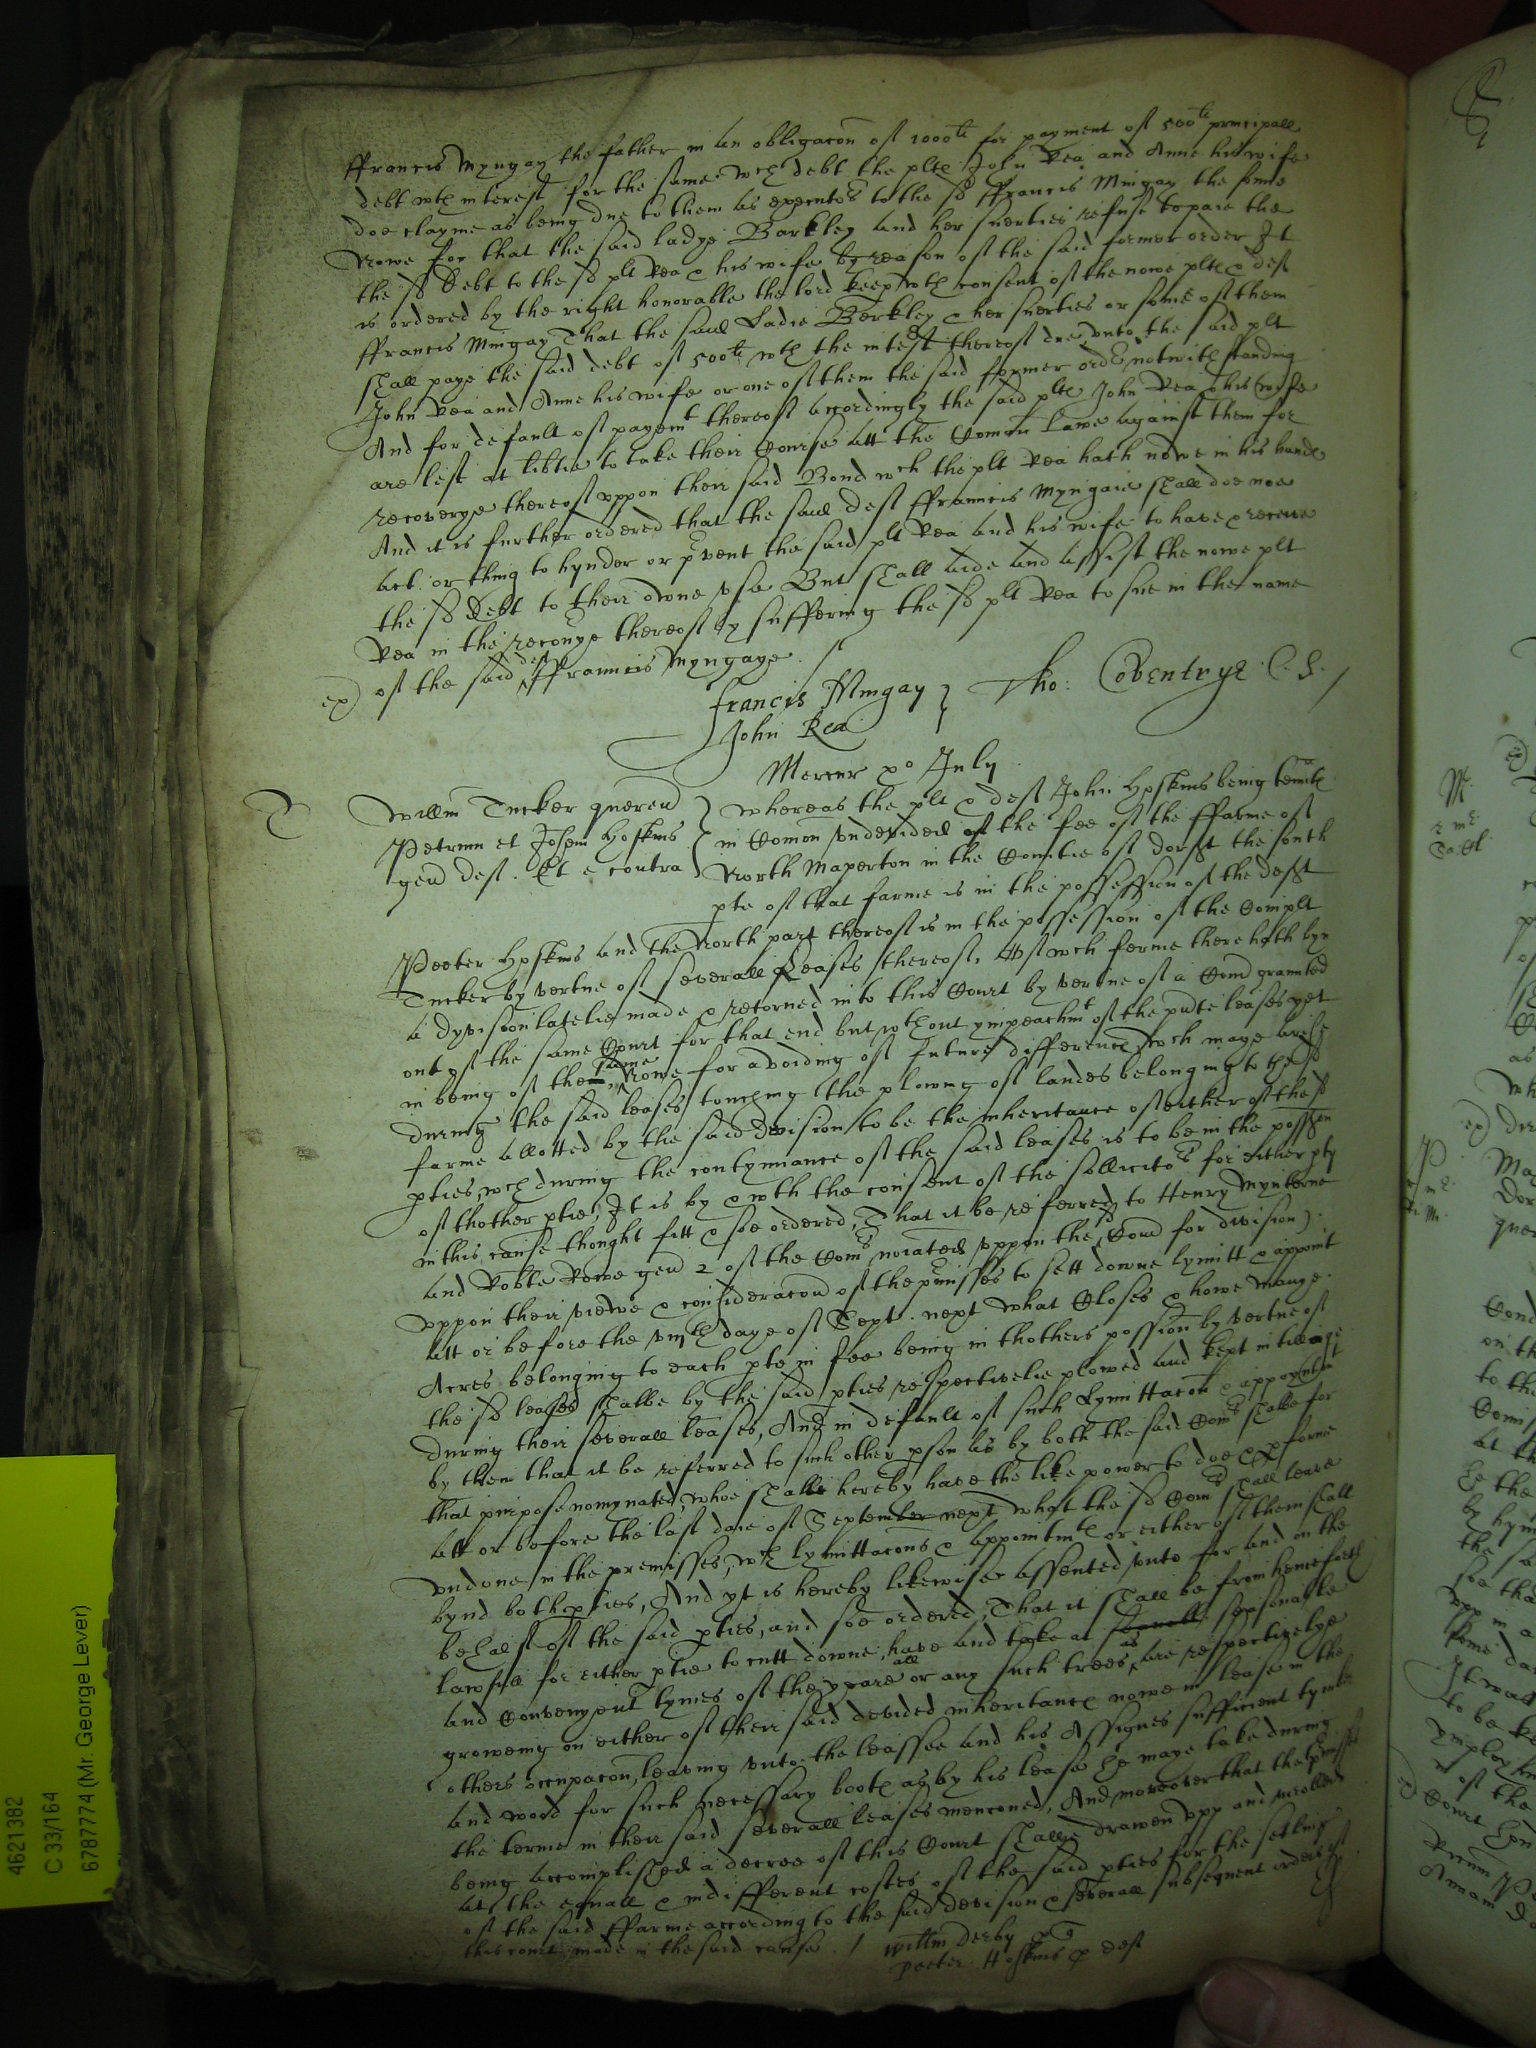 ffrancis Myngay the father in an obligacon of 1000li for payment of 500li principall
debt wth interest for the same wch debt the plts John Rea and Anne his wife
doe clayme as being due to them as executors to the sd ffrancis Mingay the sonne
Nowe for that the said ladye Barkley and her suerties refuse to paie the
the sd debt to the sd plt Rea & his wife by reason of the said former order It
is ordered by the right honorable the lord keep wth consent of the nowe plts & deft
ffrancis Mingay That the said Ladie Berkley & her suerties or some of them
shall paye the said debt of 500li wth the intest thereof due unto the said plt
John Rea and Anne his wife or one of them the said former order notwithstanding
And for default of paymt thereof accordingly the said plts John Rea & his wife
are left at libtie to take their Course att the Comon lawe against them for
recoverye thereof uppon their said Bond wch the plt Rea hath nowe in his hands
And it is further ordered that the said deft ffrancis Myngaie shall doe noe
act or thing to hynder or pvent the said plt Rea and his wife to have & receive
the sd debt to their owne use But shall aide and assist the nowe plt
Rea in the recouye thereof by suffering the sd plt Rea to sue in the name
ex) of the said deft ffrancis Myngaye
Francis Mingay } Tho: Coventrye C.S.
John Rea
Mercur po July
T Willm Tucker quereu } whereas the plt & deft John Hoskins being tennts
Petrum et Johem Hoskins in Comon undevided of the fee of the ffarme of
gen deft. Et e contra North Maperton in the Countie of dorst the south
pte of that farme is in the possession of the deft
Peeter Hoskins and the North part thereof is in the possession of the Complt
Tucker by vertue of severall leases thereof, Of wch ferme there hath byn
a dyvision latelie made & retorned into this Court by vertue of a Comn graunted
out of the same Court for that end but wthout ympeachmt of the pnte leases yet
in being of the same, Nowe for advoiding of future difference wch maye arise
during the said leases touching the plowing of landes belonging to the sd
farme allotted by the said devision to be the inheritance of either of the sd
pties, wch during the contynuance of the said leases is to be in the possion
of thother ptie, It is by & wth the consent of the sollicitors for either pty
in this cause thought fitt & soe ordered, That it be referred to Henry Mynterne
and Rowe gen 2 of the Comrs noiated uppon the sd Comn for division).
uppon their viewe & consideracon of the pmisses to sett downe lymitt & appoint
att or before the viijth daye of Sept. next what Closes & howe manye
Acres belonging to each pte in fee being in thothers possion by vertue of
the sd leases shalbe by the said pties respectivelie plowed and kept in tillage
during their severall leases, And in default of such Lymittacon & appoyntmt
by them that it be referred to such other pson as by both the said Comrs shalbe for
that purpose nomynated, whoe shall hereby have the like power to doe & pforme
att or before the last daie of September next what the sd Comrs shall leave
undone in the premisses, wch lymittacons & appointmts or either of them shall
bynd both pties, And yt is hereby likewise assented unto for and on the
behalf of the said pties, and soe ordered, That it shall be from henceforth
lawfull for either ptie to cutt downe, have and take at seasonable
and Convenyent tymes of the yeare all or any such trees as are respectivelye
groweing on either of their said devided inheritance nowe in lease in the
others occupacon, leaving unto the leassee and his Assignes sufficient tymber
and wood for such necessary boote as by his lease he maye take during
the terme in their said severall leases menconed, And moreover that the pmisses
being accomplished a decree of this Court shalbe drawen upp and inrolled
at the equall & indifferent costes of the said pties for the setling
of the said ffarme according to the said devision & severall subsequent orders of
this court made in the said cause./ Willm Derby
Peeter Hoskins deft
4621382
C 33/164
6787774 (Mr. George Lever)